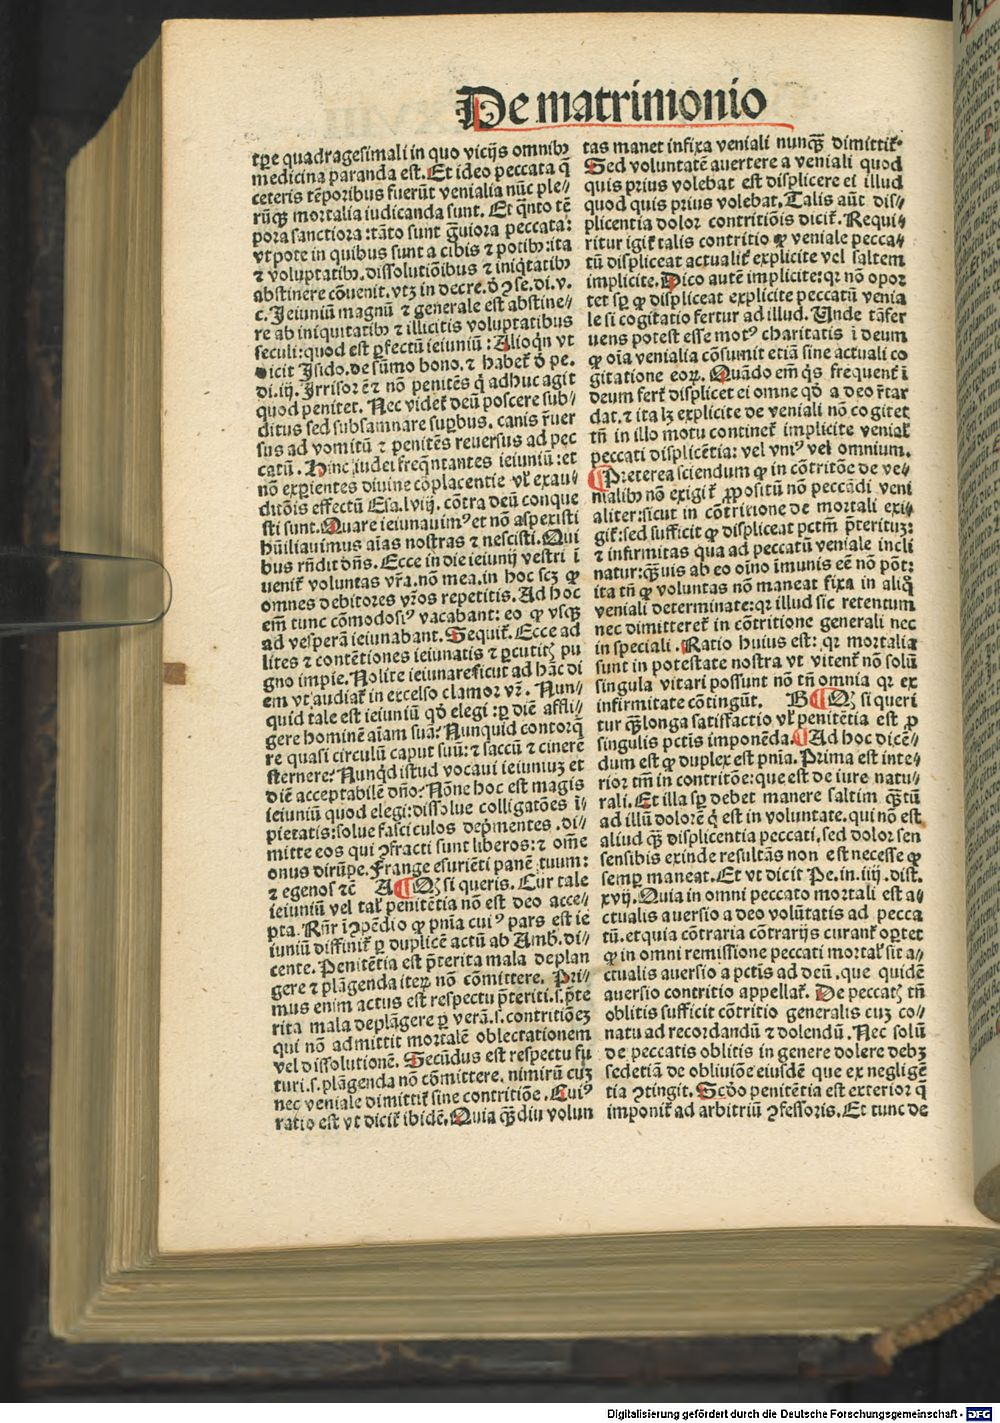 De matrimonio
tꝑe quadragesimali in quo vicijs omnibꝰ
medicina paranda est. Et ideo peccata q̄
ceteris tēporibus fuerūt venialia nūc ple⸗
rūq; mortalia iudicanda sunt. Et q̄nto tē
pora sanctiora: tāto sunt g̈uiora peccata:
vt pote in quibus sunt a cibis ⁊ potibꝰ: ita
⁊ voluptatibꝰ. dissolutiōibus ⁊ iniq̇tatibꝰ
abstinere cōuenit. vtꝫ in decre. ꝺ̄ ꝯse. di. v.
c. Ieiuniū magnū ⁊ generale est abstine⸗
re ab iniquitatibꝰ ⁊ illicitis voluptatibus
seculi: quod est ꝑfectū ieiuniū: Alioq̇n vt
dicit Isido. de sūmo bono. ⁊ habetꝛ ꝺ̄ pe.
di. iij. Irrisor ē ⁊ nō penitēs q̇ adhuc agit
quod penitet. Nec videtꝛ deū poscere sub⸗
ditus sed subsannare suꝑbus. canis r̄uer
sus ad vomitū ⁊ penitēs reuersus ad pec
catū. Hinc iudei freq̄ntantes ieiuniū: et
nō exꝑientes diuine cōplacentie vꝉ exau⸗
ditōis effectū Esa. lviij. cōtra deū conque
sti sunt. Quare ieiunauimꝰ et nō aspexisti
hūiliauimus aīas nostras ⁊ nescisti. Qui
bus rn̄dit dn̄s. Ecce in die ieiunij vestri ī
uenitꝛ voluntas vr̄a. nō mea. in hoc scꝫ ꝙ
omnes debitores vr̄os repetitis. Ad hoc
em̄ tunc cōmodosiꝰ vacabant: eo ꝙ vsq;
ad vesperā ieiunabant. Sequitꝛ. Ecce ad
lites ⁊ contētiones ieiunatis ⁊ ꝑcutitꝭ pu
gno impie. Nolite ieiunare sicut ad hāc di
em vt audiatꝛ in excelso clamor vr̄. Nun⸗
quid tale est ieiuniū qꝺ̄ elegi: ꝑ diē affli⸗
gere hominē aīam suā? Nunquid contorq̄
re quasi circulū caput suū: ⁊ saccū ⁊ cinerē
sternere? Nunq̇d istud vocaui ieiuniuꝫ et
diē acceptabilē dn̄o? Nōne hoc est magis
ieiuniū quod elegi: dissolue colligatōes ī⸗
pietatis: solue fasciculos dep̄mentes. di⸗
mitte eos qui ꝯfracti sunt liberos: ⁊ om̄e
onus dirūpe. Frange esuriēti panē tuum:
⁊ egenos ⁊cē A ¶ Qꝫ si queris. Cur tale
ieiuniū vel talꝭ penitētia nō est deo acce⸗
pta. Rn̄r ī ꝯpēdio ꝙ pnīa cuiꝰ pars est ie
iuniū diffinitꝛ ꝑ duplicē actū ab Amb. di⸗
cente. Penitētia est p̄terita mala deplan
gere ⁊ plāgenda iteꝝ nō cōmittere. Pri⸗
mus enim actus est respectu p̄teriti. s. p̄te
rita mala deplāgere ꝑ verā. s. contritiōeꝫ
qui nō admittit mortalē oblectationem
vel dissolutionē. Secūdus est respectu fu
turi. s. plāgenda nō cōmittere. nimirū cuꝫ
nec veniale dimittitꝛ sine contritiōe. Cuiꝰ
ratio est vt dicitꝛ ibidē. Quia q̄ꝫ diu volun
tas manet infixa veniali nunq̄ꝫ dimittitꝛ.
Sed voluntatē auertere a veniali quod
quis prius volebat est displicere ei illud
quod quis prius volebat. Talis aūt dis⸗
plicentia dolor contritiōis dicitꝛ. Requi⸗
ritur igitꝛ talis contritio ꝙ veniale pecca⸗
tū displiceat actualitꝛ explicite vel saltem
implicite. Dico autē implicite: qꝛ nō opor
tet sꝑ ꝙ displiceat explicite peccatū venia
le si cogitatio fertur ad illud. Unde tāfer
uens potest esse motꝰ charitatis ī deum
ꝙ oīa venialia cōsumit etiā sine actuali co
gitatione eoꝝ. Quādo em̄ q̇s frequentꝛ ī
deum fertꝛ displicet ei omne qꝺ̄ a deo r̄tar
dat. ⁊ ita lꝫ explicite de veniali nō cogitet
tn̄ in illo motu continetꝛ implicite venialꝭ
peccati displicētia: vel vniꝰ vel omnium.
¶ Preterea sciendum ꝙ in cōtritōe de ve⸗
nialibꝰ nō exigitꝛ ꝓpositū nō peccādi veni
aliter: sicut in cōtritione de mortali exi⸗
gitꝛ: sed sufficit ꝙ displiceat pctm̄ p̄terituꝫ:
⁊ infirmitas qua ad peccatū veniale incli
natur: q̄ꝫuis ab eo oīno īmunis eē nō pōt:
ita tn̄ ꝙ voluntas nō maneat fixa in aliq̄
veniali determinate: qꝛ illud sic retentum
nec dimitteretꝛ in cōtritione generali nec
in speciali. Ratio huius est: qꝛ mortalia
sunt in potestate nostra vt vitentꝛ nō solū
singula vitari possunt nō tn̄ omnia qꝛ ex
infirmitate cōtingūt. B ¶ Qꝫ si queri
tur q̄ꝫ longa satisfactio vꝉ penitētia est ꝓ
singulis pctīs imponēda. ¶ Ad hoc dicē⸗
dum est ꝙ duplex est pnīa. Prima est inte⸗
rior tm̄ in contritōe: que est de iure natu⸗
rali. Et illa sꝑ debet manere saltim q̄ꝫtū
ad illū dolorē q̇ est in voluntate. qui nō est
aliud q̄ꝫ displicentia peccati. sed dolor sen
sensibis exinde resultās non est necesse ꝙ
semꝑ maneat. Et vt dicit Pe. in. iiij. dist.
xvij. Quia in omni peccato mortali est a⸗
ctualis auersio a deo volūtatis ad pecca
tū. et quia cōtraria cōtrarijs curantꝛ oꝑtet
ꝙ in omni remissione peccati mortalꝭ sit a⸗
ctualis auersio a pctīs ad deū. que quidē
auersio contritio appellatꝛ. De peccatꝭ tn̄
oblitis sufficit cōtritio generalis cuꝫ co⸗
natu ad recordandū ⁊ dolendū. Nec solū
de peccatis oblitis in genere dolere debꝫ
sed etiā de obliuiōe eiusdē que ex negligē
tia ꝯtingit. Scꝺ̄o penitētia est exterior q̄
imponitꝛ ad arbitriū ꝯfessoris. Et tunc de
Digitalisierung gefördert durch die Deutsche Forschungsgemeinschaft - DFG